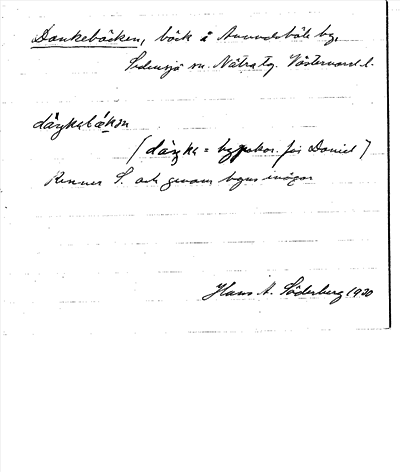 Dankebäcken, bäck å Anundsböle by,
Sidensjö sn. Nätra tg. Västernorrl. l.
dàŋkebǽkən
(dàŋke = hypokor. för Daniel)
Rinner S. och genom byns inägor
Hans A. Söderberg 1920